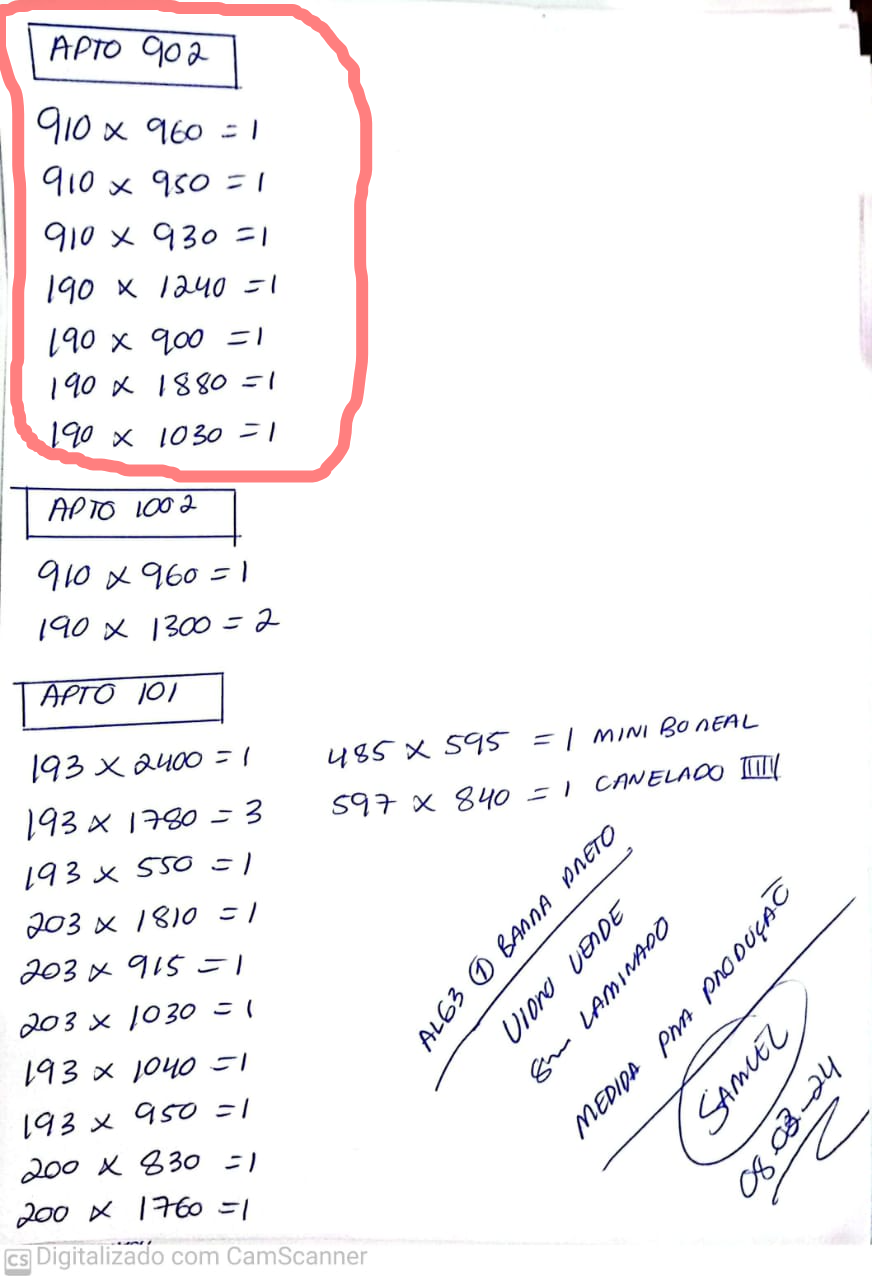 APTO 902
910 x 960 = 1
910 x 950 = 1
910 x 930 = 1
190 x 1240 = 1
190 x 900 = 1
190 x 1880 = 1
190 x 1030 = 1
APTO 1002
910 x 960 = 1
190 x 1300 = 2
APTO 101
193 x 2400 = 1
193 x 1780 = 3
193 x 550 = 1
203 x 1810 = 1
203 x 915 = 1
203 x 1030 = 1
193 x 1040 = 1
193 x 950 = 1
200 x 830 = 1
200 x 1760 = 1
485 x 595 = 1 MINI BOREAL
597 x 840 = 1 CANELADO
AL63 ① BARRA PRETO
VIDRO VERDE
8mm LAMINADO
MEDIDA PRA PRODUÇÃO
SAMUEL
08-03-24
CS Digitalizado com CamScanner